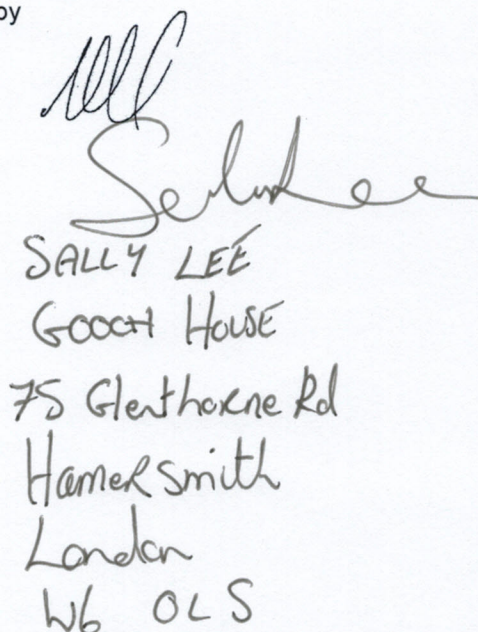 by
SALLY LEE
GOOCH HOUSE
75 Glenthorne Rd
Hamersmith
London
W6 0LS